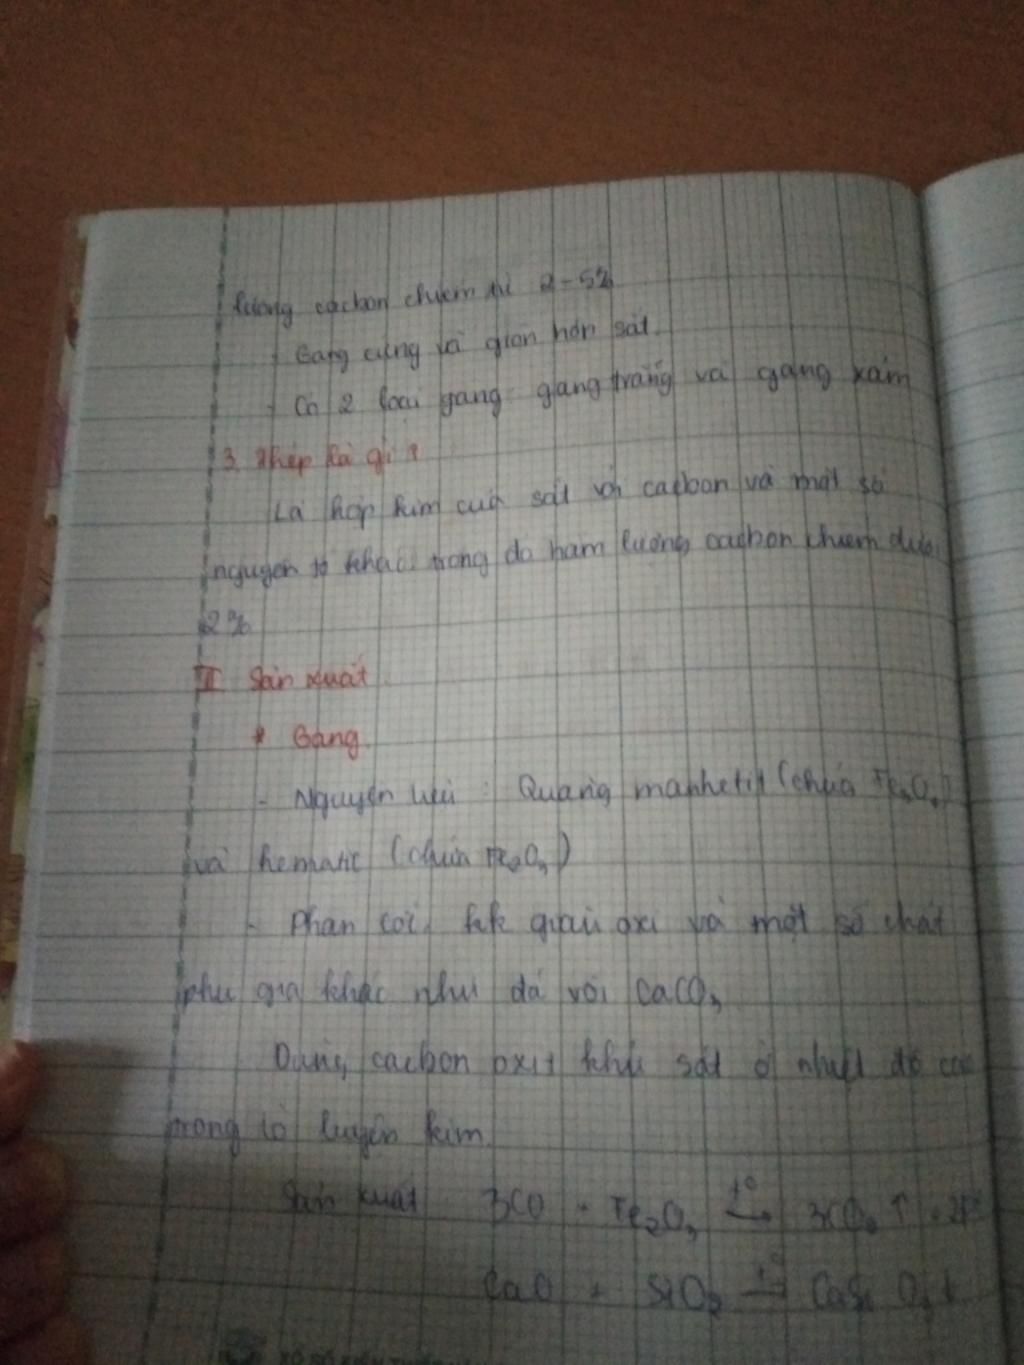 lượng cacbon chiếm từ 2-5%
- Gang cứng và giòn hơn sắt.
- Có 2 loại gang: gang trắng và gang xám
3. Thép là gì?
Là hợp kim của sắt với cacbon và một số
nguyên tố khác trong đó hàm lượng cacbon chiếm dưới
2%
II Sản xuất
* Gang
- Nguyên liệu: Quặng manhetit (chứa Fe3O4)
và hematic (chứa Fe2O3)
- Than cốc, giàu oxi và một số chất
phụ gia khác như đá vôi CaCO3
Dùng cacbon oxit khử sắt ở nhiệt độ cao
trong lò luyện kim.
Sản xuất 3CO + Fe2O3 t° → 3CO2 ↑ + 2Fe
CaO + SiO2 t° → CaSiO3